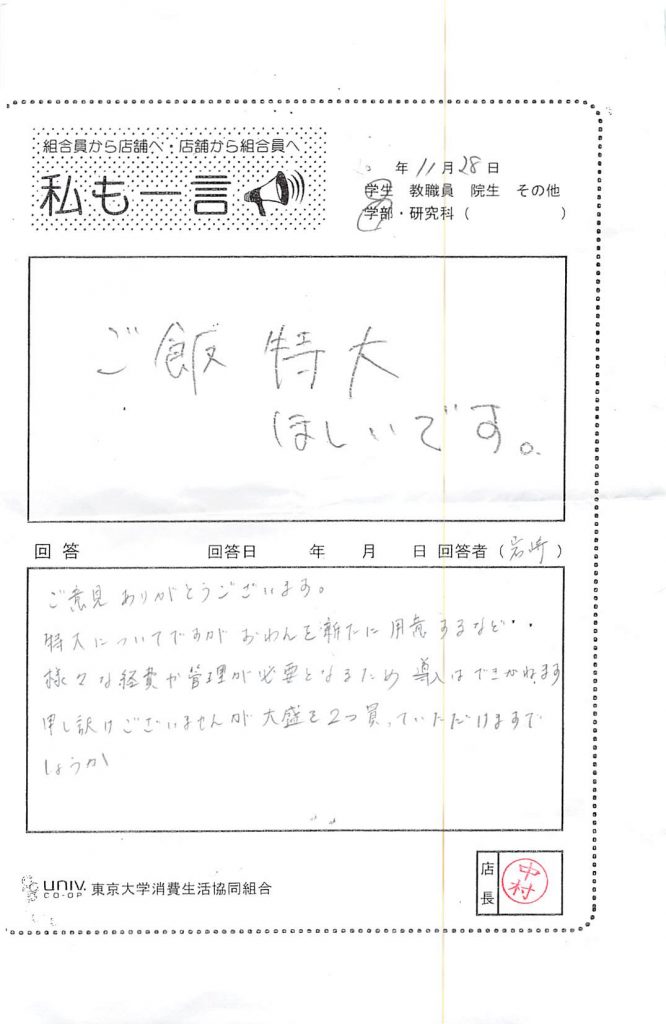 組合員から店舗へ・店舗から組合員へ
私も一言
年 11月28日
学生 教職員 院生 その他
学部・研究科 ( )
ご飯 特大
ほしいです。
回答 回答日 年 月 日 回答者 (岩崎)
ご意見ありがとうございます。
特大についてですが おわんを新たに用意するなど・・
様々な経費や管理が必要となるため 導入はできかねます
申し訳けございませんが 大盛を2つ買っていただけますで
しょうか
UNIV. CO-OP 東京大学消費生活協同組合
店長 中村